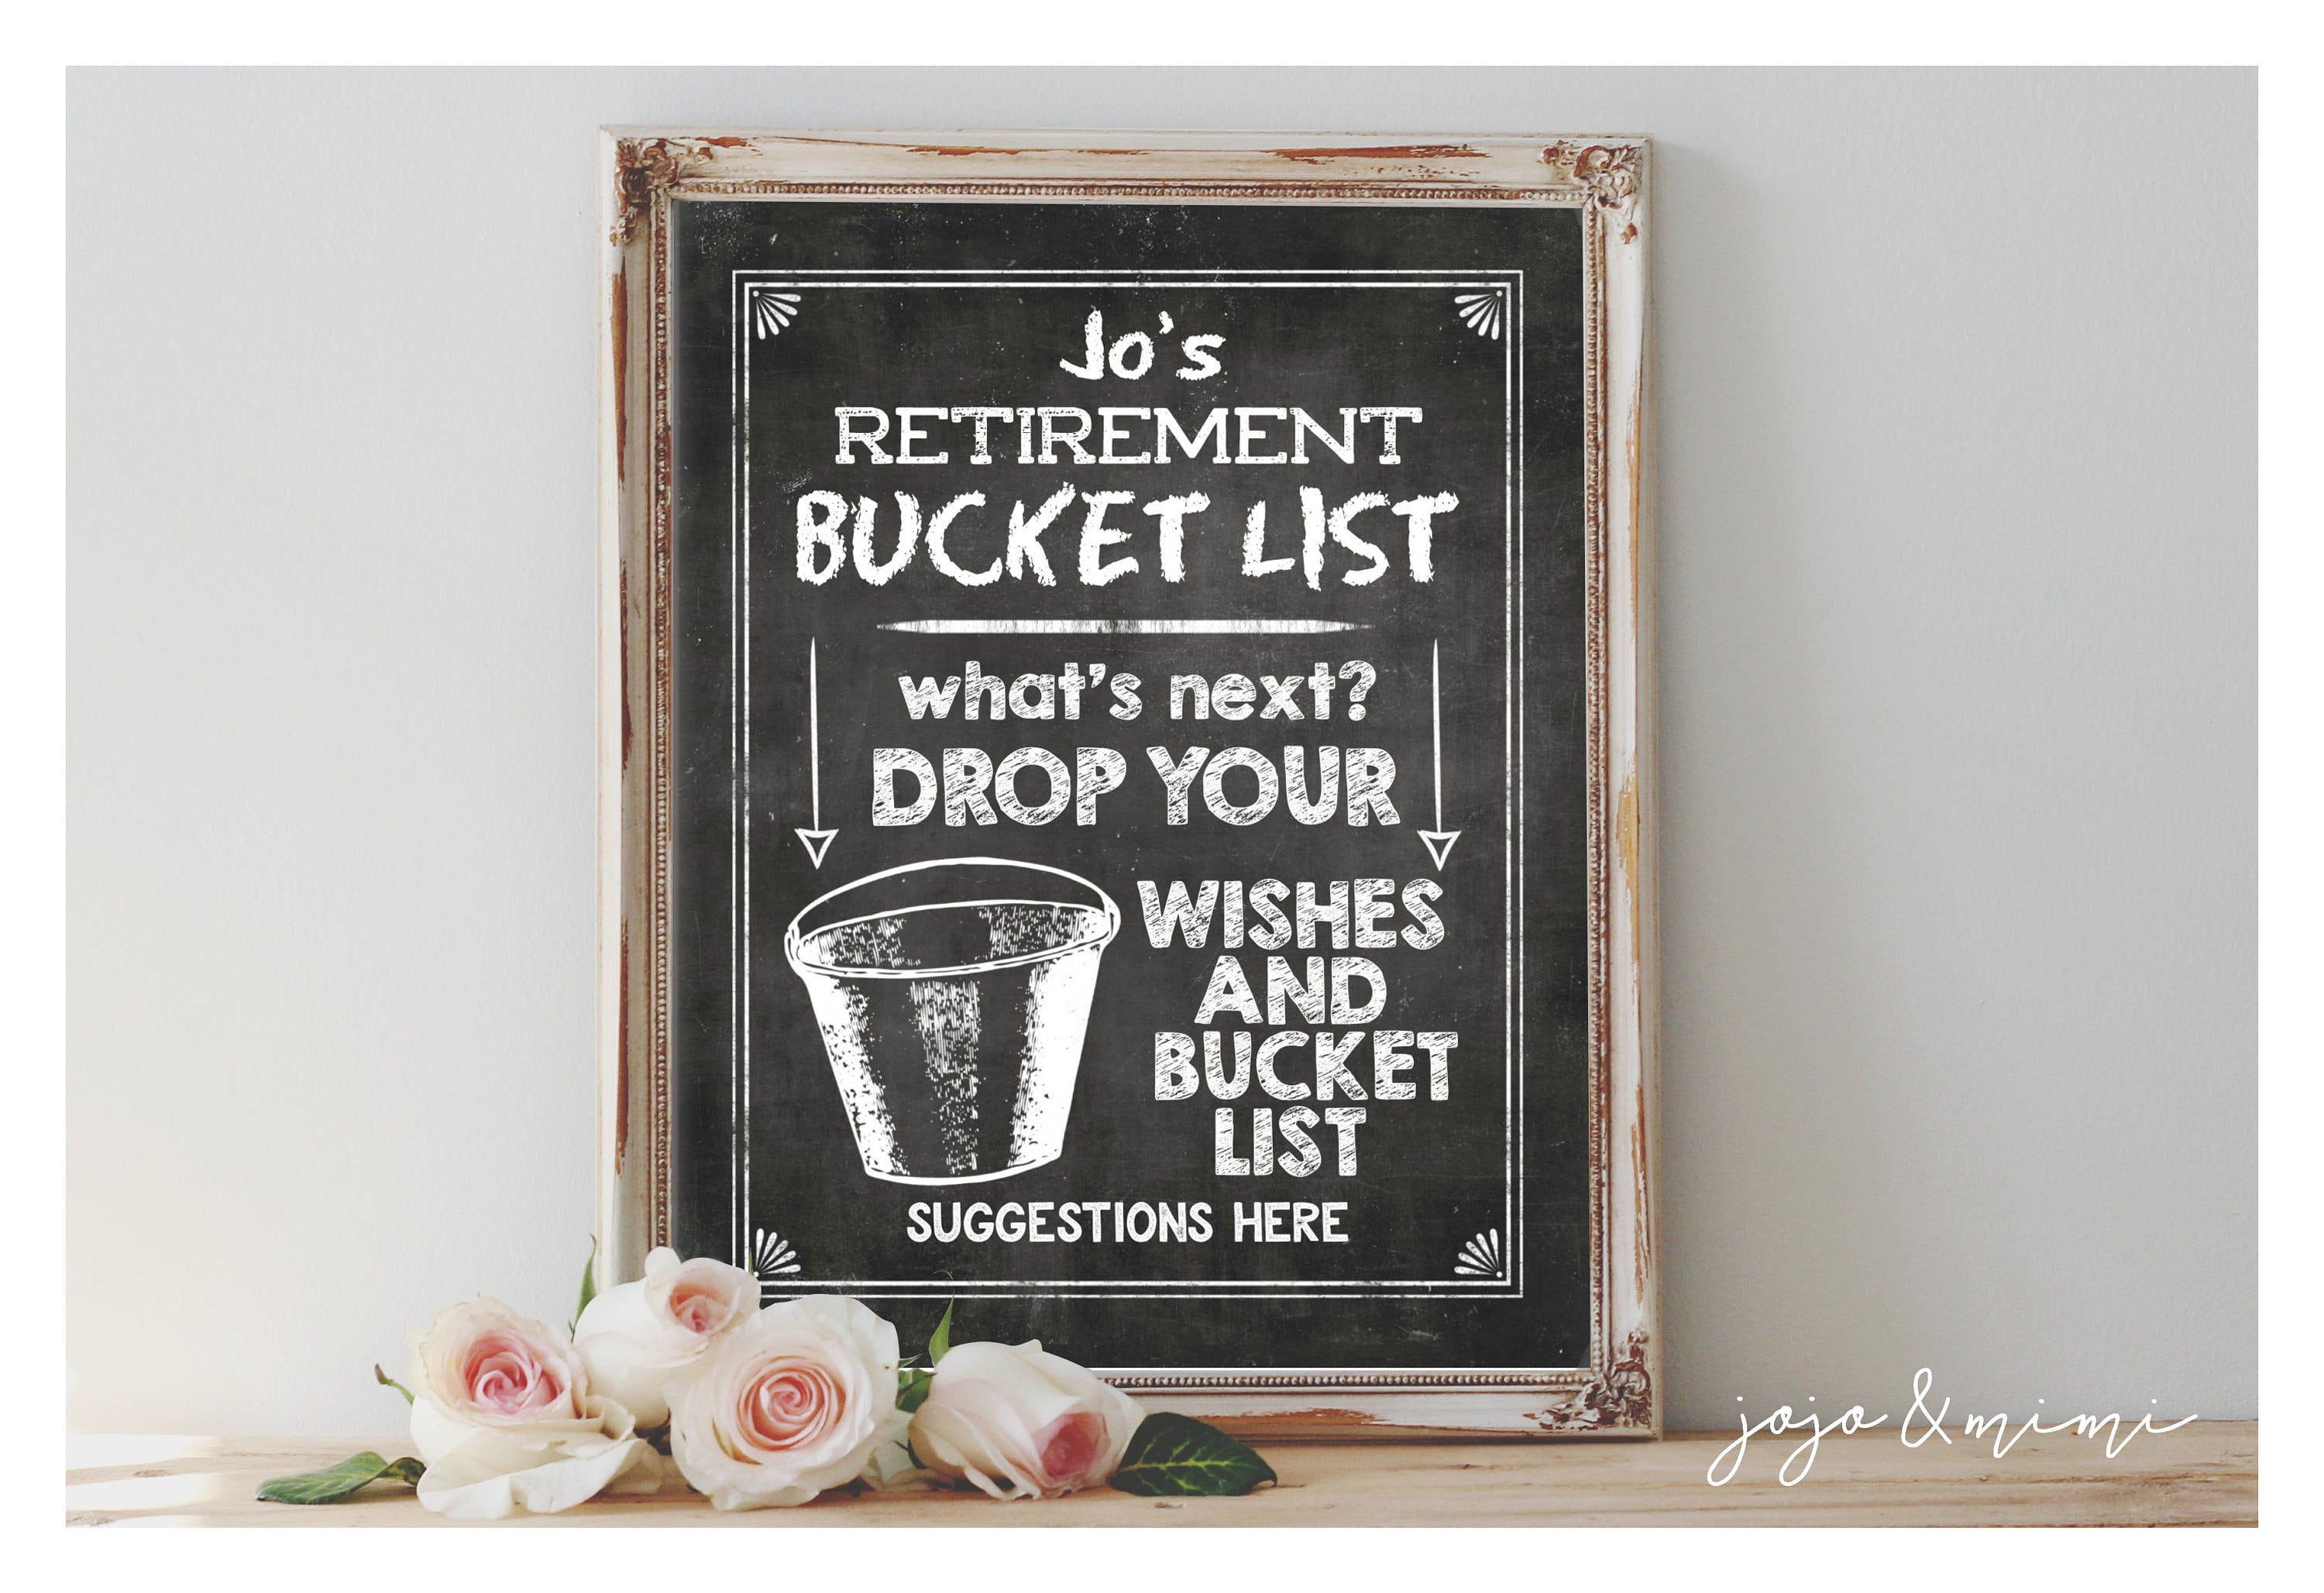 Jo's
RETIREMENT
BUCKET LIST
what's next?
DROP YOUR
WISHES
AND
BUCKET
LIST
SUGGESTIONS HERE
jojo & mimi